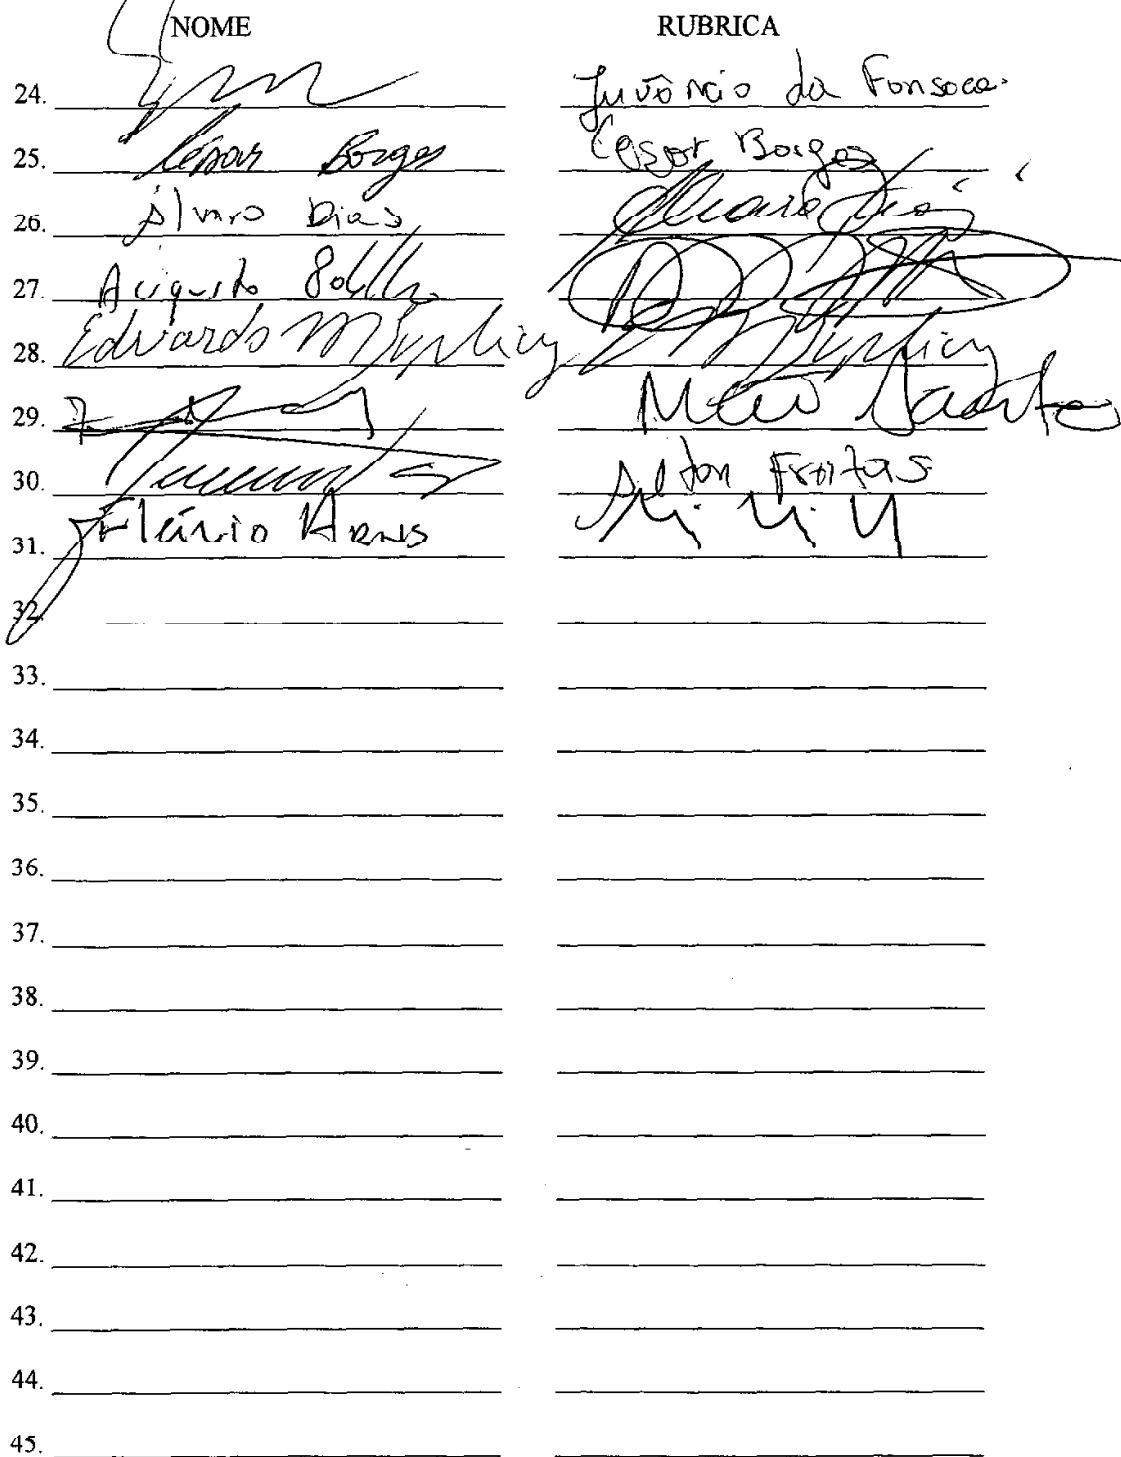 NOME RUBRICA
24. Juvêncio da Fonseca
25. César Borges César Borges
26. Álvaro Dias Alvaro Dias
27. Augusto Botelho
28. Eduardo M Suplicy E M Suplicy
29. Santos
30. Freitas
31. Flávio Arns
32.
33.
34.
35.
36.
37.
38.
39.
40.
41.
42.
43.
44.
45.